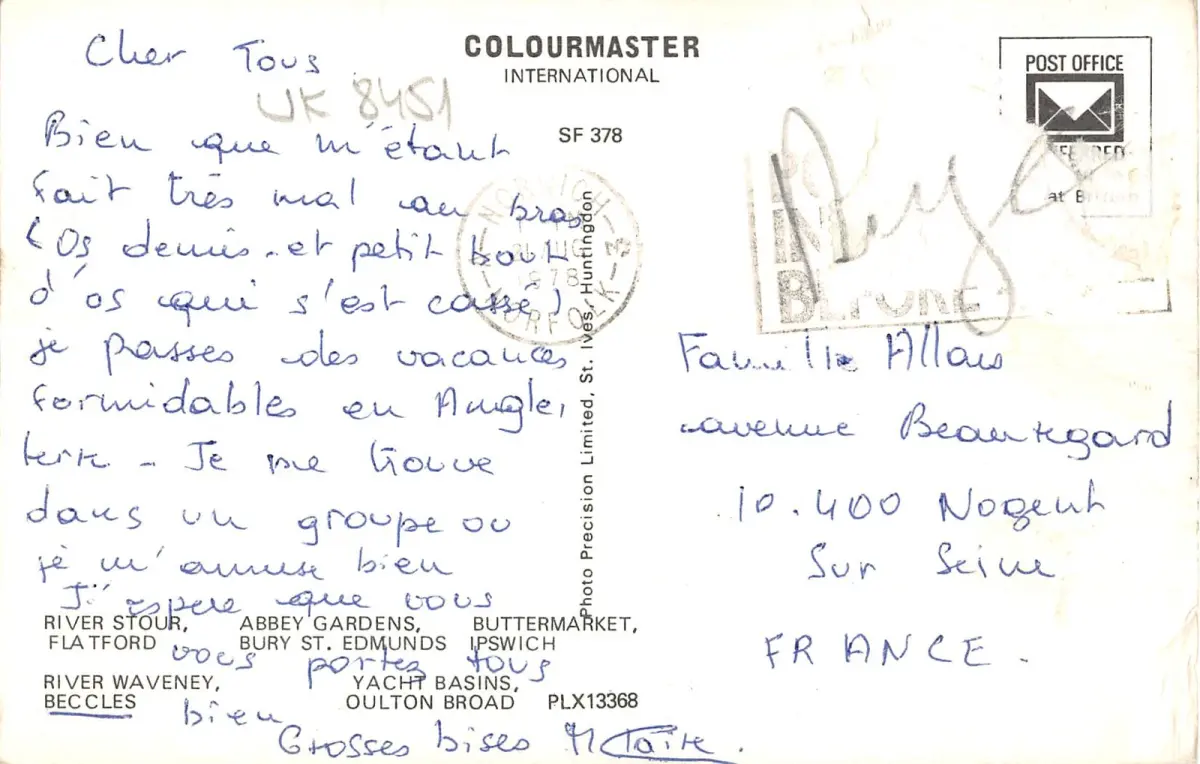 Cher Tous
UK 8451
Bien que m'étant
fait très mal au bras
(Os demis. et petit bout
d'os qui s'est cassé)
je passes des vacances
formidables en Angle,
terre - Je me trouve
dans un groupe ou
je m'amuse bien
J'éspere que vous
vous portez tous
bien
Grosses bises M Claire.
COLOURMASTER
INTERNATIONAL
SF 378
Photo Precision Limited, St. Ives, Huntingdon
RIVER STOUR, ABBEY GARDENS, BUTTERMARKET,
FLATFORD BURY ST. EDMUNDS IPSWICH
RIVER WAVENEY, YACHT BASINS,
BECCLES OULTON BROAD PLX13368
POST OFFICE
NORWICH
NORFOLK
Famille Allais
avenue Beauregard
10.400 Nogent
Sur Seine
FRANCE.